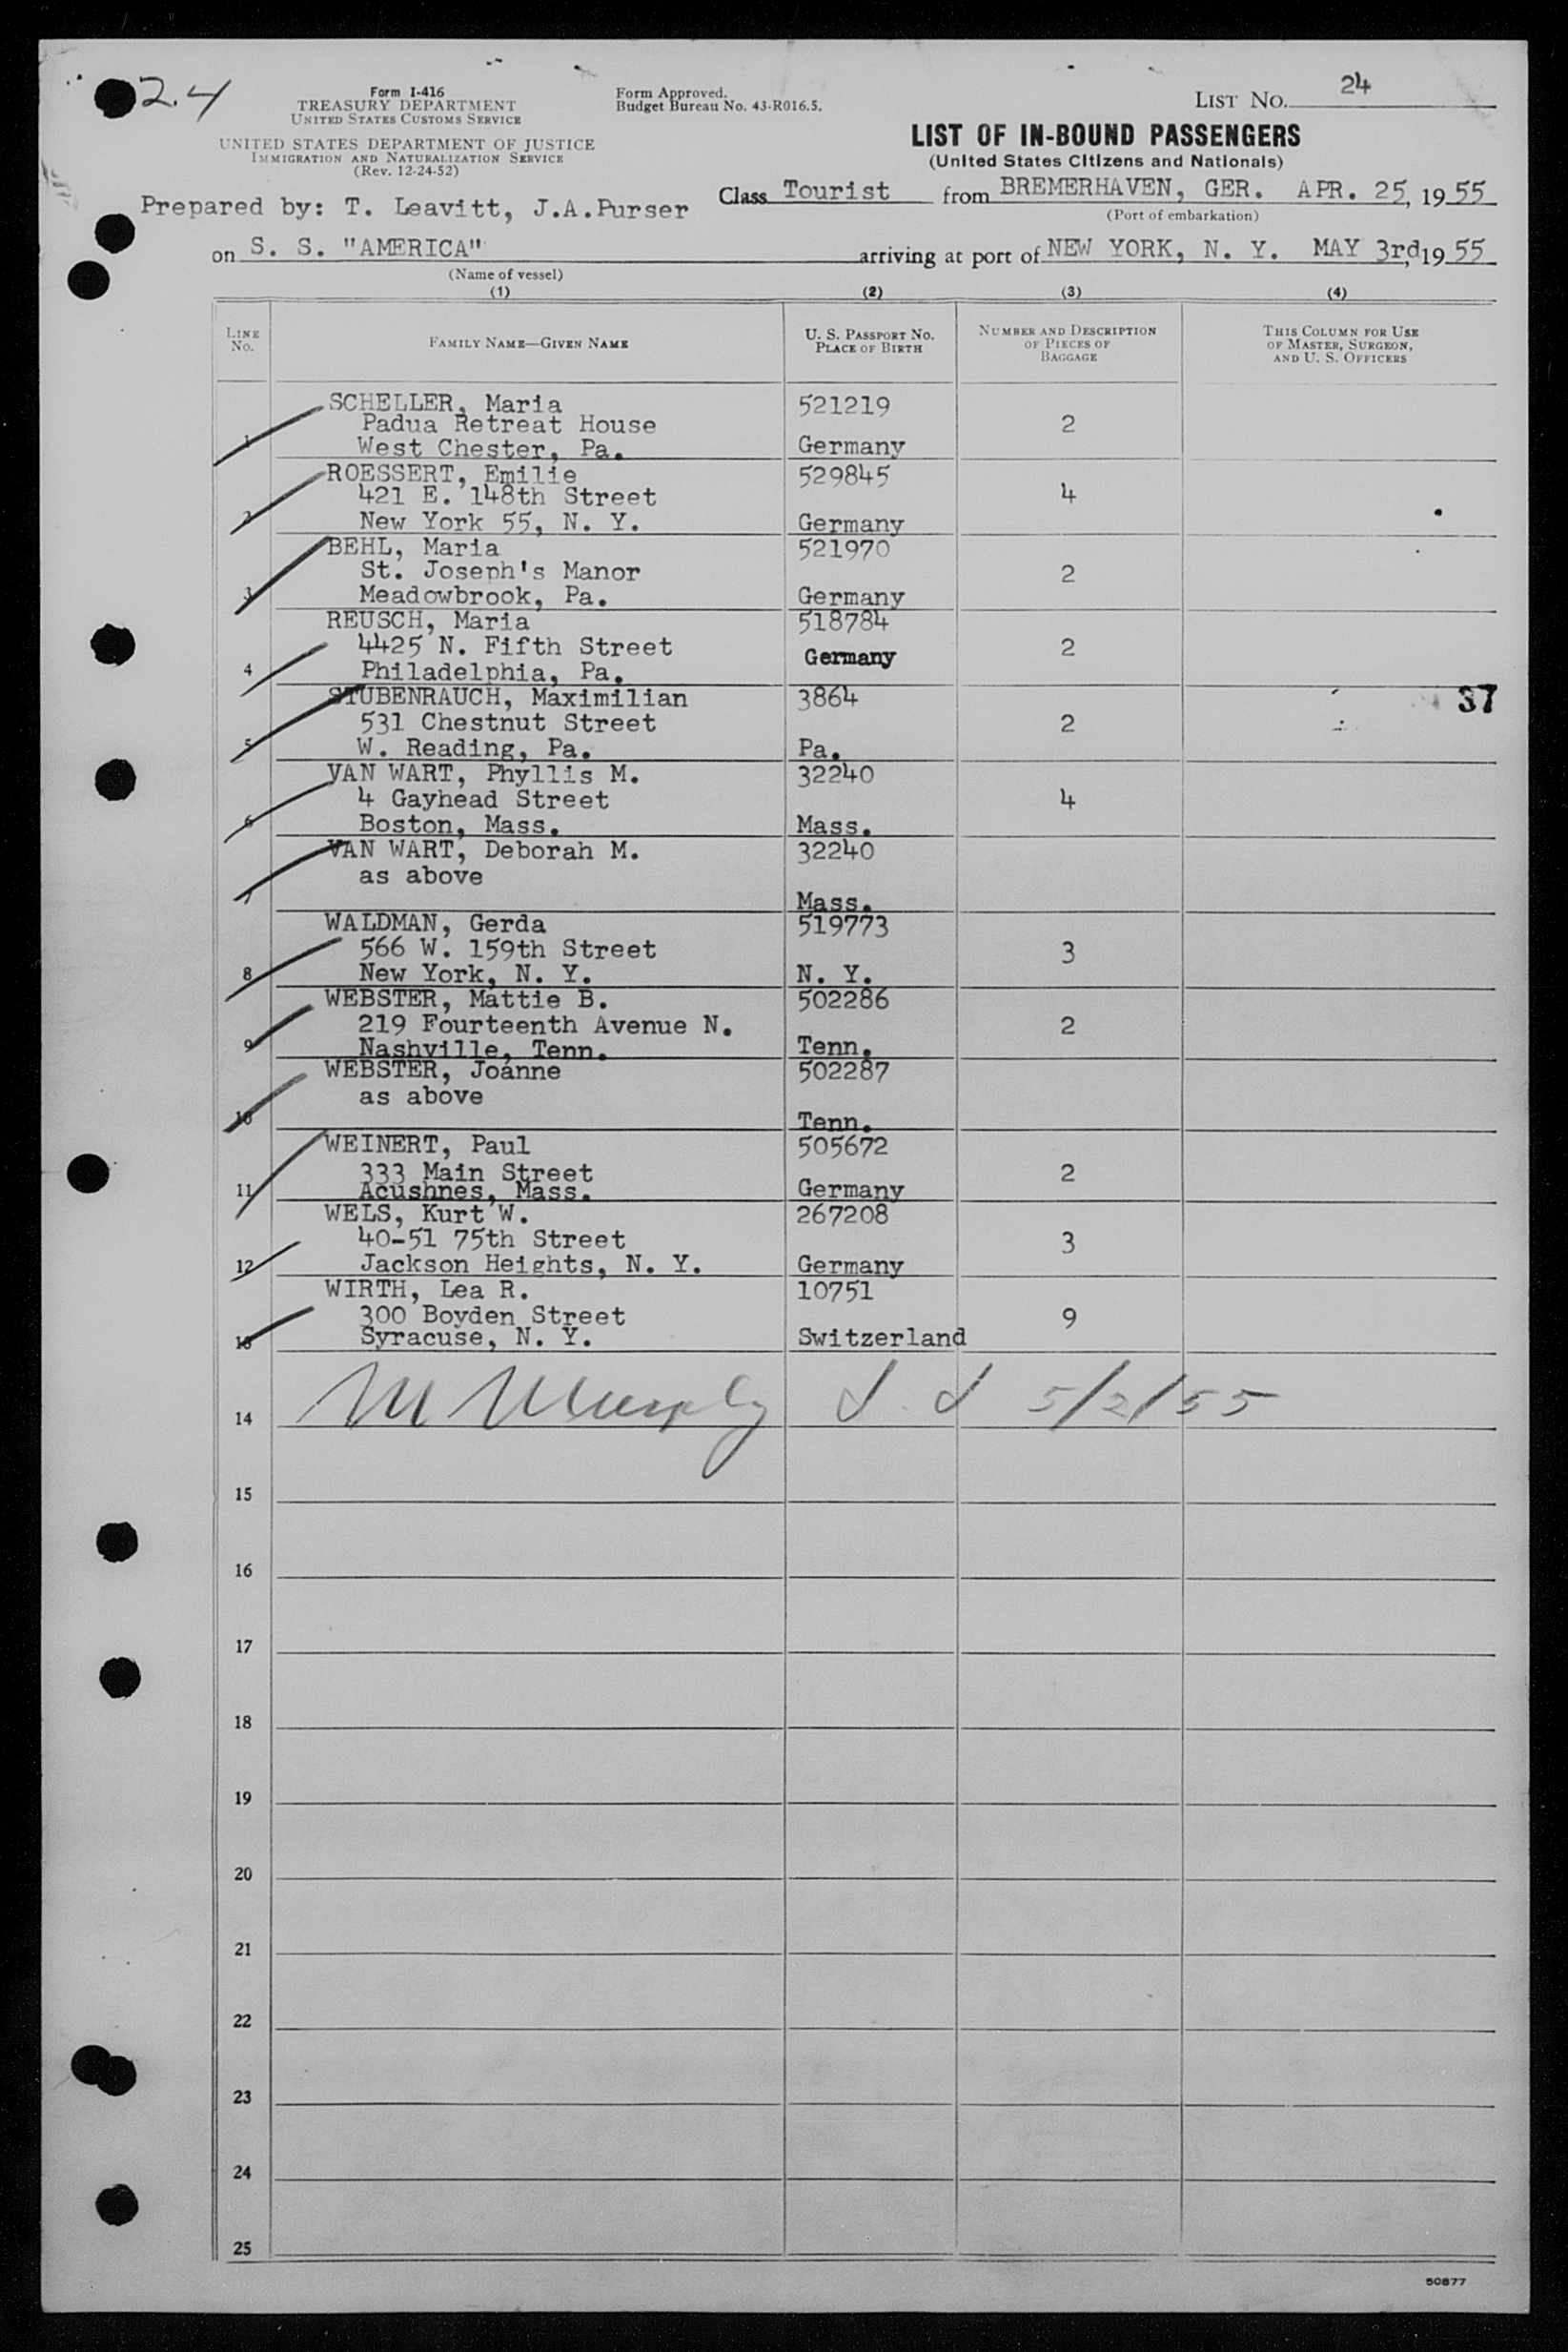 24
Form I-416
TREASURY DEPARTMENT
UNITED STATES CUSTOMS SERVICE
UNITED STATES DEPARTMENT OF JUSTICE
IMMIGRATION AND NATURALIZATION SERVICE
(Rev. 12-24-52)
Form Approved.
Budget Bureau No. 43-R016.5.
LIST NO. 24
LIST OF IN-BOUND PASSENGERS
(United States Citizens and Nationals)
Prepared by: T. Leavitt, J.A.Purser
Class Tourist from BREMERHAVEN, GER. APR. 25, 1955
(Port of embarkation)
on S. S. "AMERICA" arriving at port of NEW YORK, N. Y. MAY 3rd, 1955
(Name of vessel)
(1) (2) (3) (4)
LINE NO.
FAMILY NAME—GIVEN NAME
U. S. PASSPORT NO.
PLACE OF BIRTH
NUMBER AND DESCRIPTION
OF PIECES OF
BAGGAGE
THIS COLUMN FOR USE
OF MASTER, SURGEON,
AND U. S. OFFICERS
SCHELLER, Maria 521219
Padua Retreat House 2
1 West Chester, Pa. Germany
ROESSERT, Emilie 529845
421 E. 148th Street 4
2 New York 55, N. Y. Germany
BEHL, Maria 521970
St. Joseph's Manor 2
3 Meadowbrook, Pa. Germany
REUSCH, Maria 518784
4425 N. Fifth Street Germany 2
4 Philadelphia, Pa.
STUBENRAUCH, Maximilian 3864 37
531 Chestnut Street 2
5 W. Reading, Pa. Pa.
VAN WART, Phyllis M. 32240
4 Gayhead Street 4
6 Boston, Mass. Mass.
VAN WART, Deborah M. 32240
as above
7 Mass.
WALDMAN, Gerda 519773
566 W. 159th Street 3
8 New York, N. Y. N. Y.
WEBSTER, Mattie B. 502286
219 Fourteenth Avenue N. 2
9 Nashville, Tenn. Tenn.
WEBSTER, Joanne 502287
as above
10 Tenn.
WEINERT, Paul 505672
333 Main Street 2
11 Acushnes, Mass. Germany
WELS, Kurt W. 267208
40-51 75th Street 3
12 Jackson Heights, N. Y. Germany
WIRTH, Lea R. 10751
300 Boyden Street 9
13 Syracuse, N. Y. Switzerland
14 M Murphy 5/2/55
15
16
17
18
19
20
21
22
23
24
25
50877